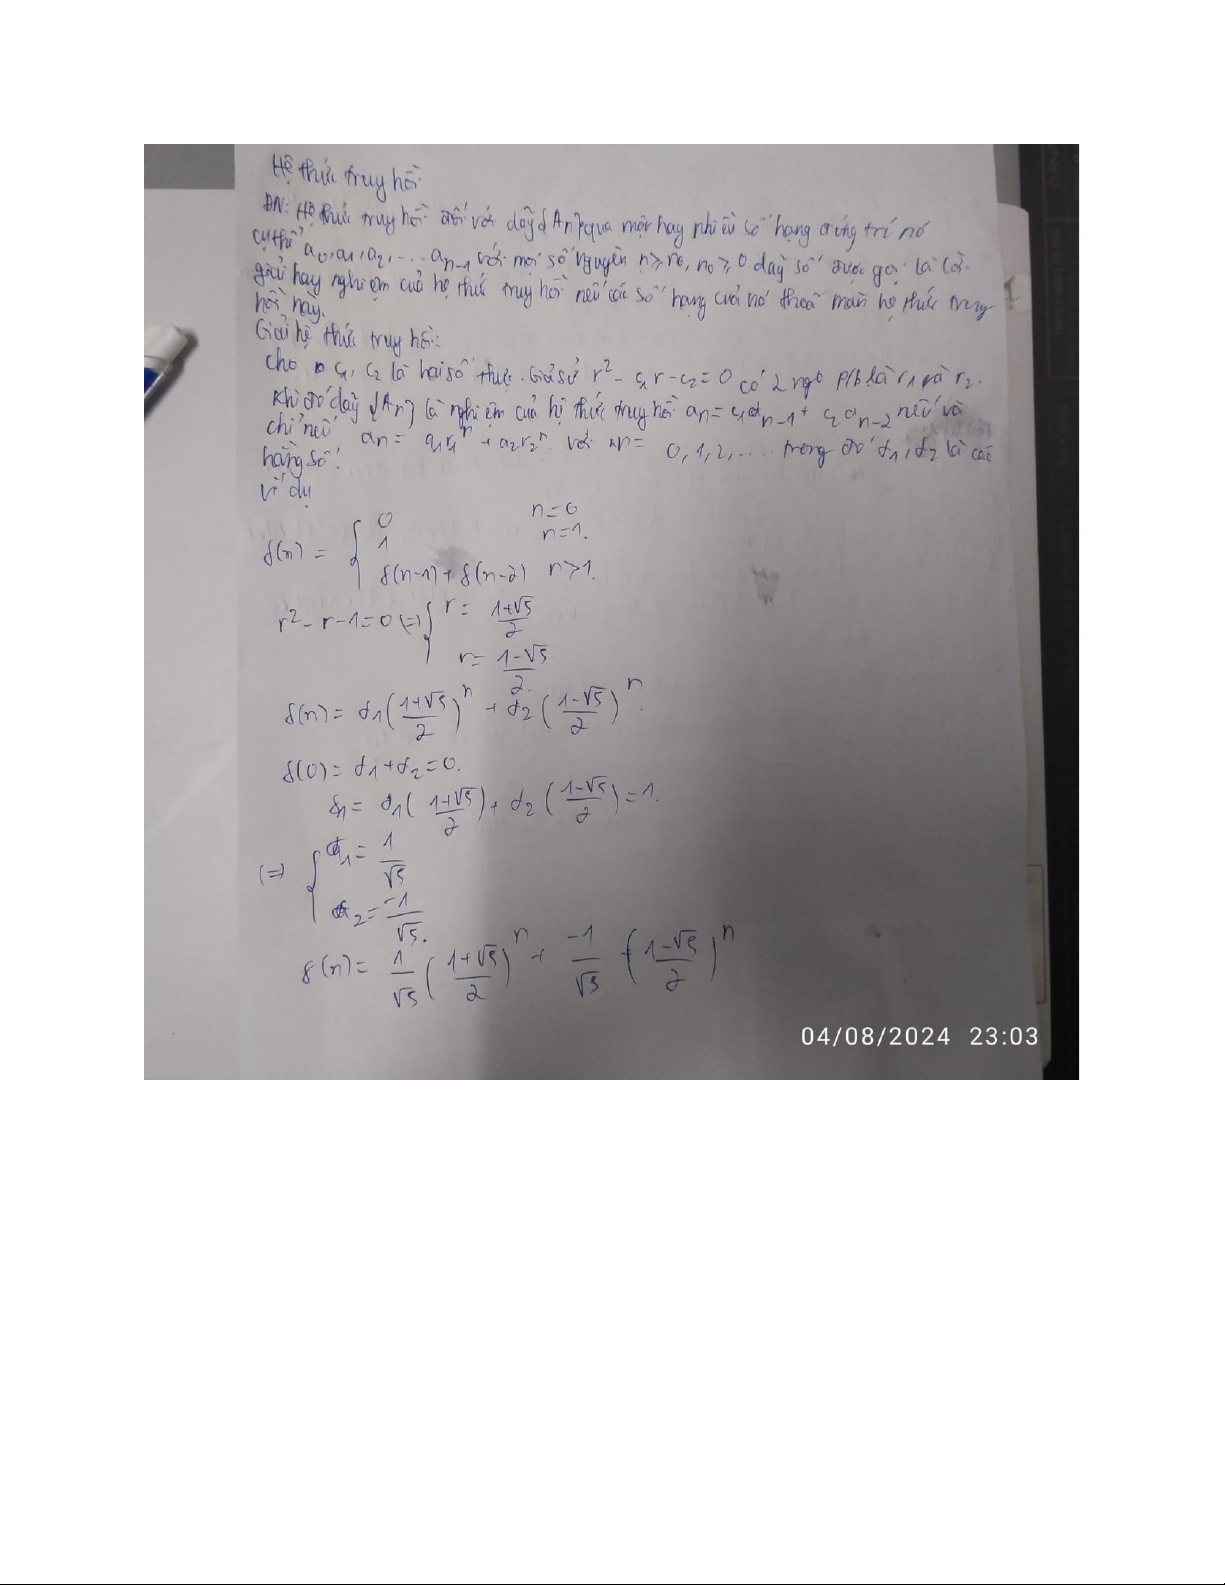 Hệ thức truy hồi
ĐN: Hệ thức truy hồi đối với dãy {An} qua một hay nhiều số hạng đứng trí nó
cụ thể a0, a1, a2, .... an-1 với mọi số nguyên n ≥ n0, n0 ≥ 0 dãy số được gọi là lời
giải hay nghiệm của hệ thức truy hồi nếu các số hạng của nó thoã mãn hệ thức truy
hồi này.
Giải hệ thức truy hồi:
cho c1, c2 là hai số thực. Giả sử r² - c1r - c2 = 0 có 2 ngo p/b là r1 và r2.
Khi đó dãy {An} là nghiệm của hệ thức truy hồi an = c1an-1 + c2an-2 nếu và
chỉ nếu an = α1r1ⁿ + α2r2ⁿ với n = 0, 1, 2, .... trong đó α1, α2 là các
hằng số.
Ví dụ
f(n) = { 0 n=0
1 n=1.
f(n-1) + f(n-2) n>1.
r² - r - 1 = 0 (=) { r = (1+√5)/2
r = (1-√5)/2.
f(n) = α1((1+√5)/2)ⁿ + α2((1-√5)/2)ⁿ.
f(0) = α1 + α2 = 0.
f1 = α1((1+√5)/2) + α2((1-√5)/2) = 1.
(=) { α1 = 1/√5
α2 = -1/√5.
f(n) = 1/√5 ((1+√5)/2)ⁿ + -1/√5 ((1-√5)/2)ⁿ
04/08/2024 23:03